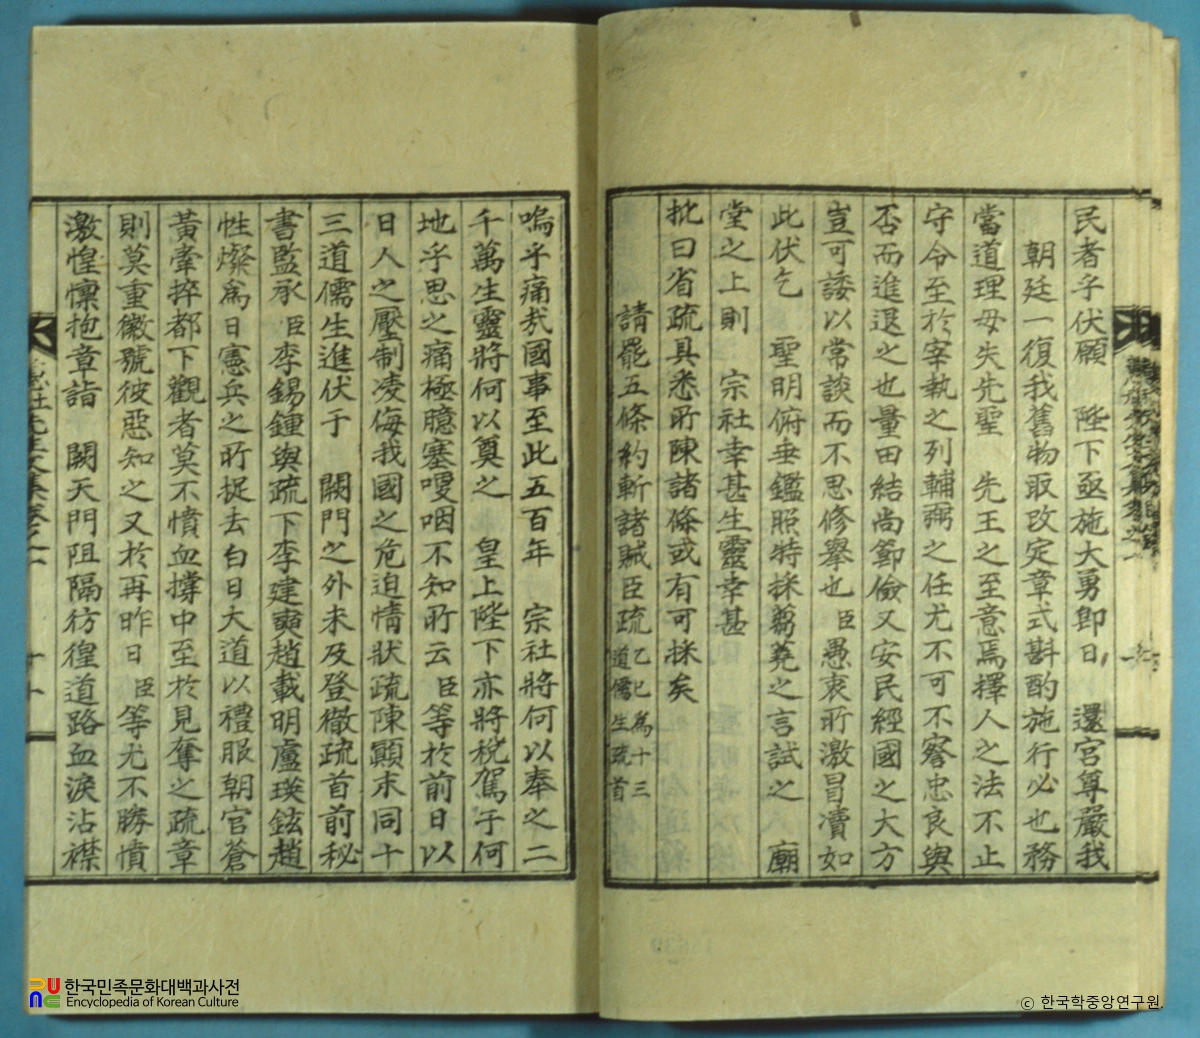 民者乎伏願 陛下亟施大勇即日 還宮尊嚴我
朝廷一復我舊物取改定章式斟酌施行必也務
當道理毋失先聖 先王之至意焉擇人之法不止
守令至於宰執之列輔弼之任尤不可不察忠良與
否而進退之也量田結尚節儉又安民經國之大方
豈可諉以常談而不思修擧也臣愚衷所激冒瀆如
此伏乞 聖明俯垂鑑照特採蒭蕘之言試之 廟
堂之上則 宗社幸甚生靈幸甚
批曰省疏具悉所陳諸條或有可採矣
請罷五條約斬諸賊臣疏乙巳爲十三道儒生疏首
嗚乎痛哉國事至此五百年 宗社將何以奉之二
千萬生靈將何以奠之 皇上陛下亦將稅駕于何
地乎思之痛極臆塞嗄咽不知所云臣等於前日以
日人之壓制凌侮我國之危迫情狀疏陳顚末同十
三道儒生進伏于 闕門之外未及登徹疏首前秘
書監丞臣李錫鍾與疏下李建奭趙載明盧瑛鉉趙
性燦爲日憲兵之所捉去白日大道以禮服朝官蒼
黃牽捽都下觀者莫不憤血撐中至於見奪之疏章
則莫重徽號彼惡知之又於再昨日臣等尤不勝憤
激惶懍抱章詣 闕天門阻隔彷徨道路血淚沾襟
한국민족문화대백과사전
Encyclopedia of Korean Culture
ⓒ 한국학중앙연구원.